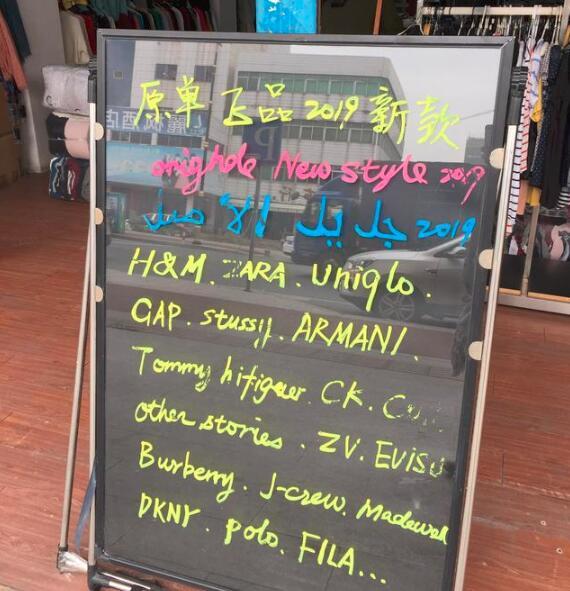 原单 品 2019 新款
New style 2019
جديد 2019
H&M. ZARA. uniqlo.
GAP. stussy. ARMANI.
Tommy hifiguer. CK.
other stories. ZV. EVISU
Burberry. J-crew. Madewel
DKNY. polo. FILA...